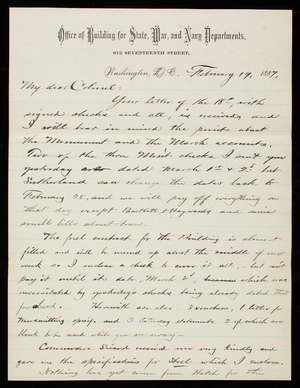 Office of Building for State, War, and Navy Departments,
612 SEVENTEENTH STREET,
Washington, D.C. February 19, 1887.
My dear Colonel:
Your letter of the 18th, with
signed checks and all, is received, and
I will bear in mind the points about
the Monument and the March accounts.
Two of the three Mint checks I sent you
yesterday are dated March 1st & 2d, but
Sutherland can change the dates back to
February 28, and we will pay off everything on
that day except Bartlett & Haywards and some
small bills about town.
The fuel cartback for the Building is almost
filled and will be wound up about the middle of next
week. I inclose a check to cover it all, but can't
pay it until its date, March 3d, which was
necessitated by yesterday's checks being already dated that
far ahead. Herewith is also 2 vouchers, 1 letter for
transmitting specifs. and 3 Saturday statements, 2 of which are
blank to be used while you are away.
Commodore Sicard received me very kindly and
gave me the specifications for Steel which I inclose.
Nothing has yet come from Hatch for the